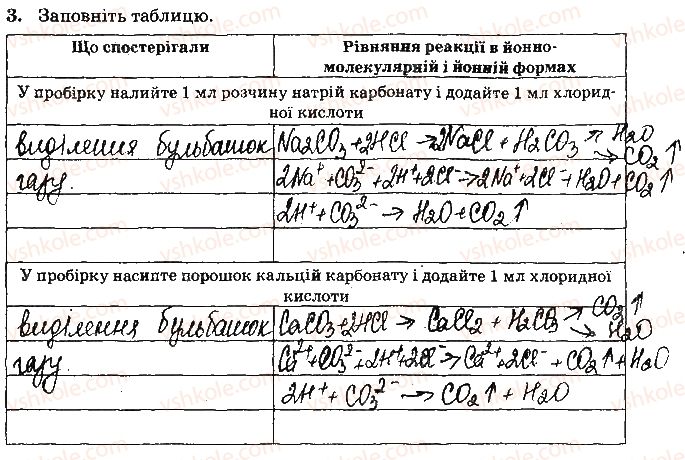 3. Заповніть таблицю.
Що спостерігали
Рівняння реакції в йонно-
молекулярній і йонній формах
У пробірку налийте 1 мл розчину натрій карбонату і додайте 1 мл хлорид-
ної кислоти
виділення бульбашок
газу.
Na2CO3+2HCl → 2NaCl + H2CO3 ↗ H2O
→ CO2 ↑
2Na⁺+CO3²⁻+2H⁺+2Cl⁻→2Na⁺+2Cl⁻+H2O+CO2↑
2H⁺+CO3²⁻ → H2O+CO2↑
У пробірку насипте порошок кальцій карбонату і додайте 1 мл хлоридної
кислоти
виділення бульбашок
газу.
CaCO3+2HCl → CaCl2 + H2CO3 → CO2↑
→ H2O
Ca²⁺+CO3²⁻+2H⁺+2Cl⁻→Ca²⁺+2Cl⁻+CO2↑+H2O
2H⁺+CO3²⁻ → CO2↑+H2O